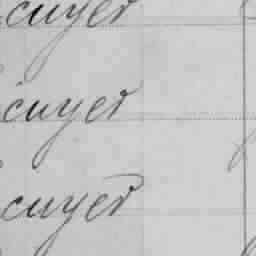 cuyer
cuyer
cuyer